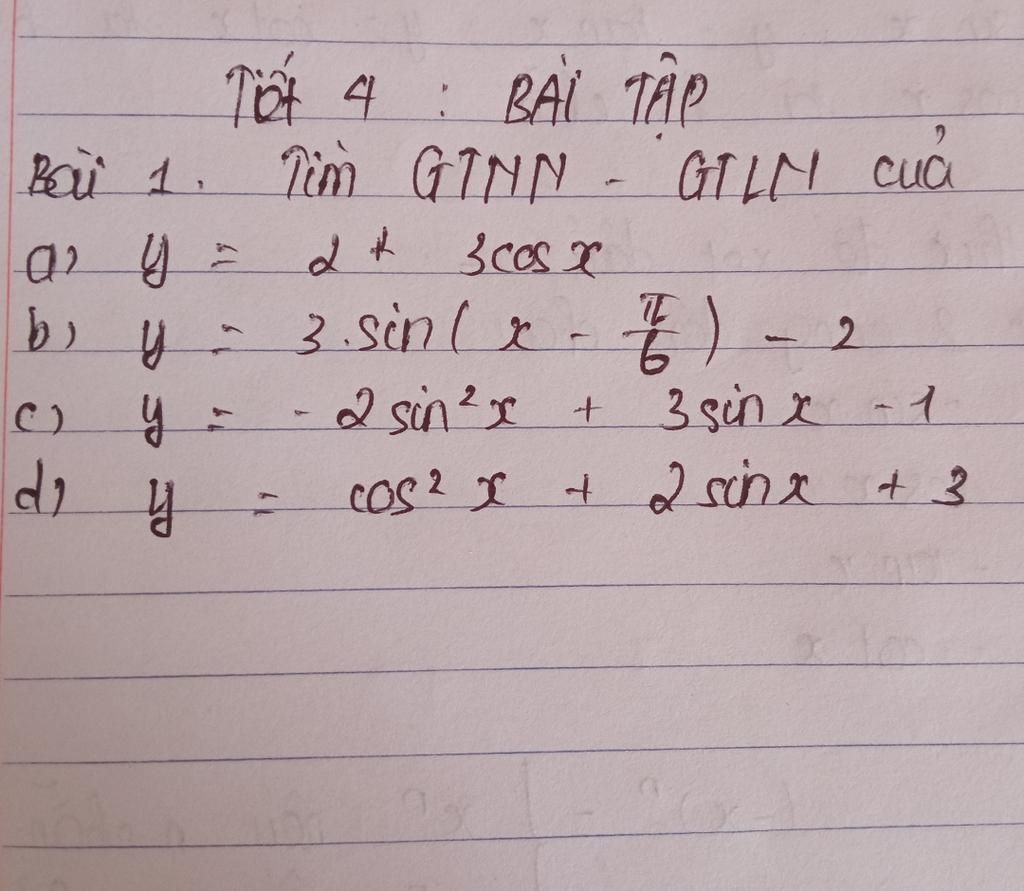 Tiết 4 : BÀI TẬP
Bài 1. Tìm GTNN - GTLN của
a) y = 2 + 3cos x
b) y = 3.sin( x - π/6 ) - 2
c) y = - 2 sin² x + 3 sin x - 1
d) y = cos² x + 2 sin x + 3